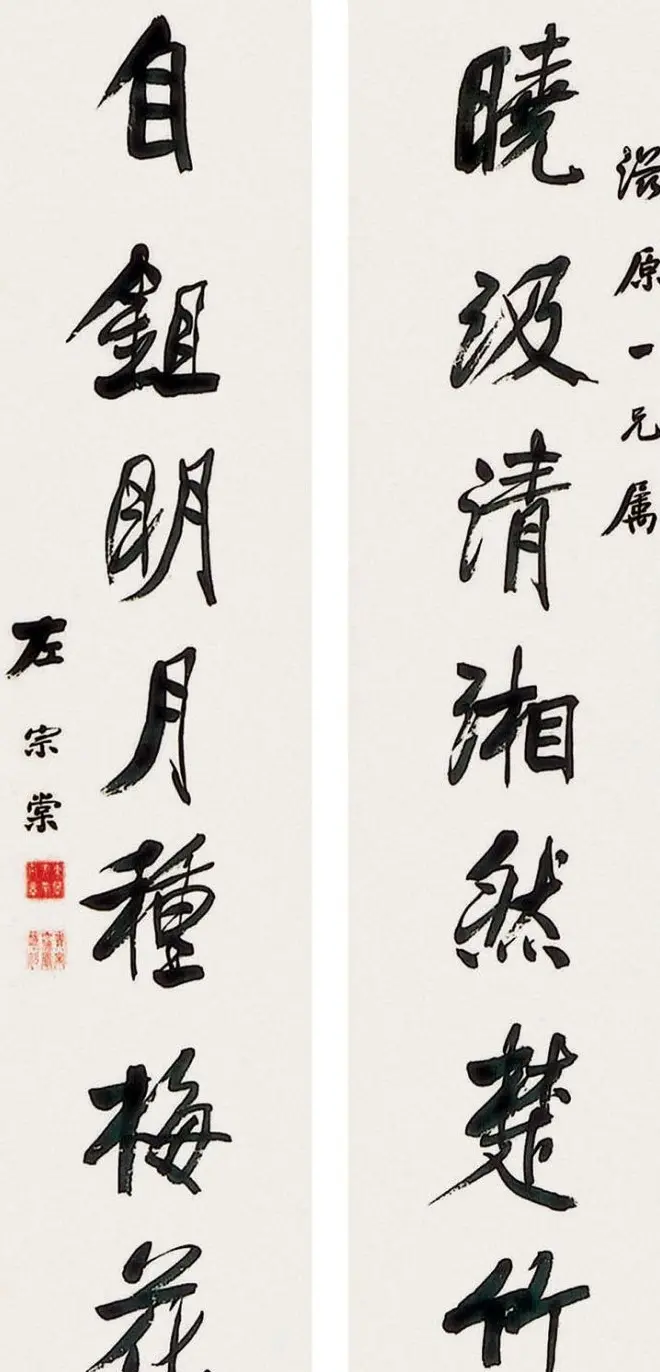 滋原一兄属
曉汲清湘然楚竹
自鉏明月種梅花
左宗棠